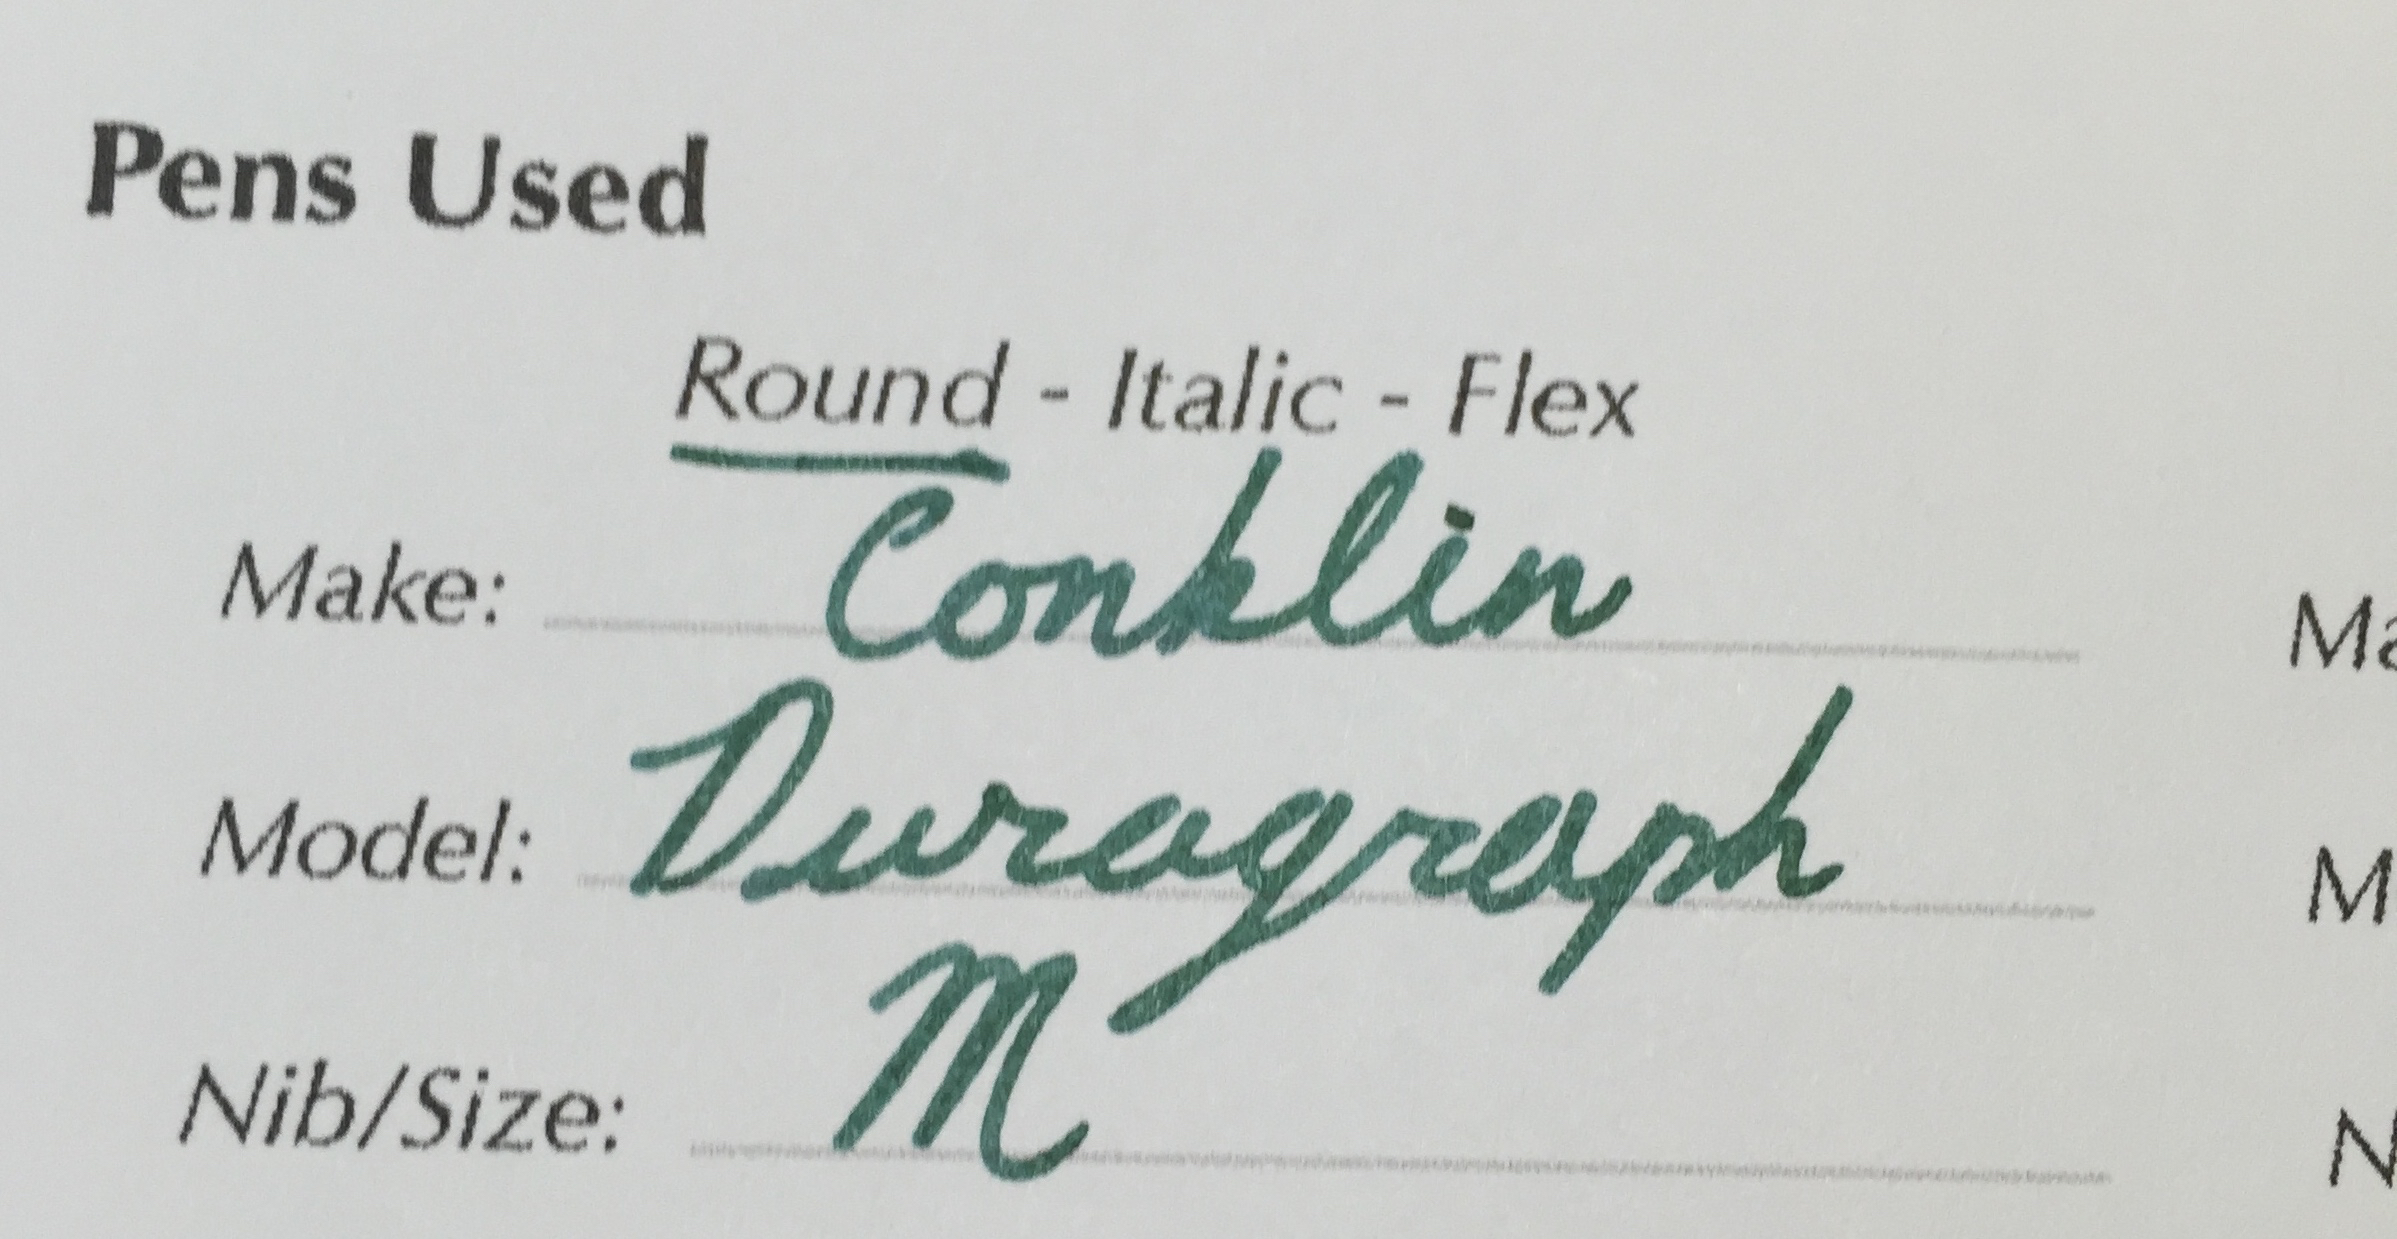 Pens Used
Round - Italic - Flex
Make: Conklin
Model: Duragraph
Nib/Size: M